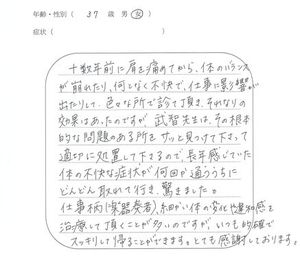 年齢・性別( 37 歳 男 女 )
症状( )
十数年前に肩を痛めてから、体のバランス
が崩れたり、何となく不快で、仕事に影響が
出たりして、色々な所で診て頂き、それなりの
効果はあったのですが、武智先生は、その根本
的な問題のある所をサッと見つけて下さって
適切に処置して下さるので、長年感じていた
体の不快な症状が何回か通ううちに
どんどん取れて行き、驚きました。
仕事柄(楽器奏者)、細かい体の変化や違和感を
治療して頂くことが多いのですが、いつも的確で
スッキリして帰ることができます。とても感謝しております。